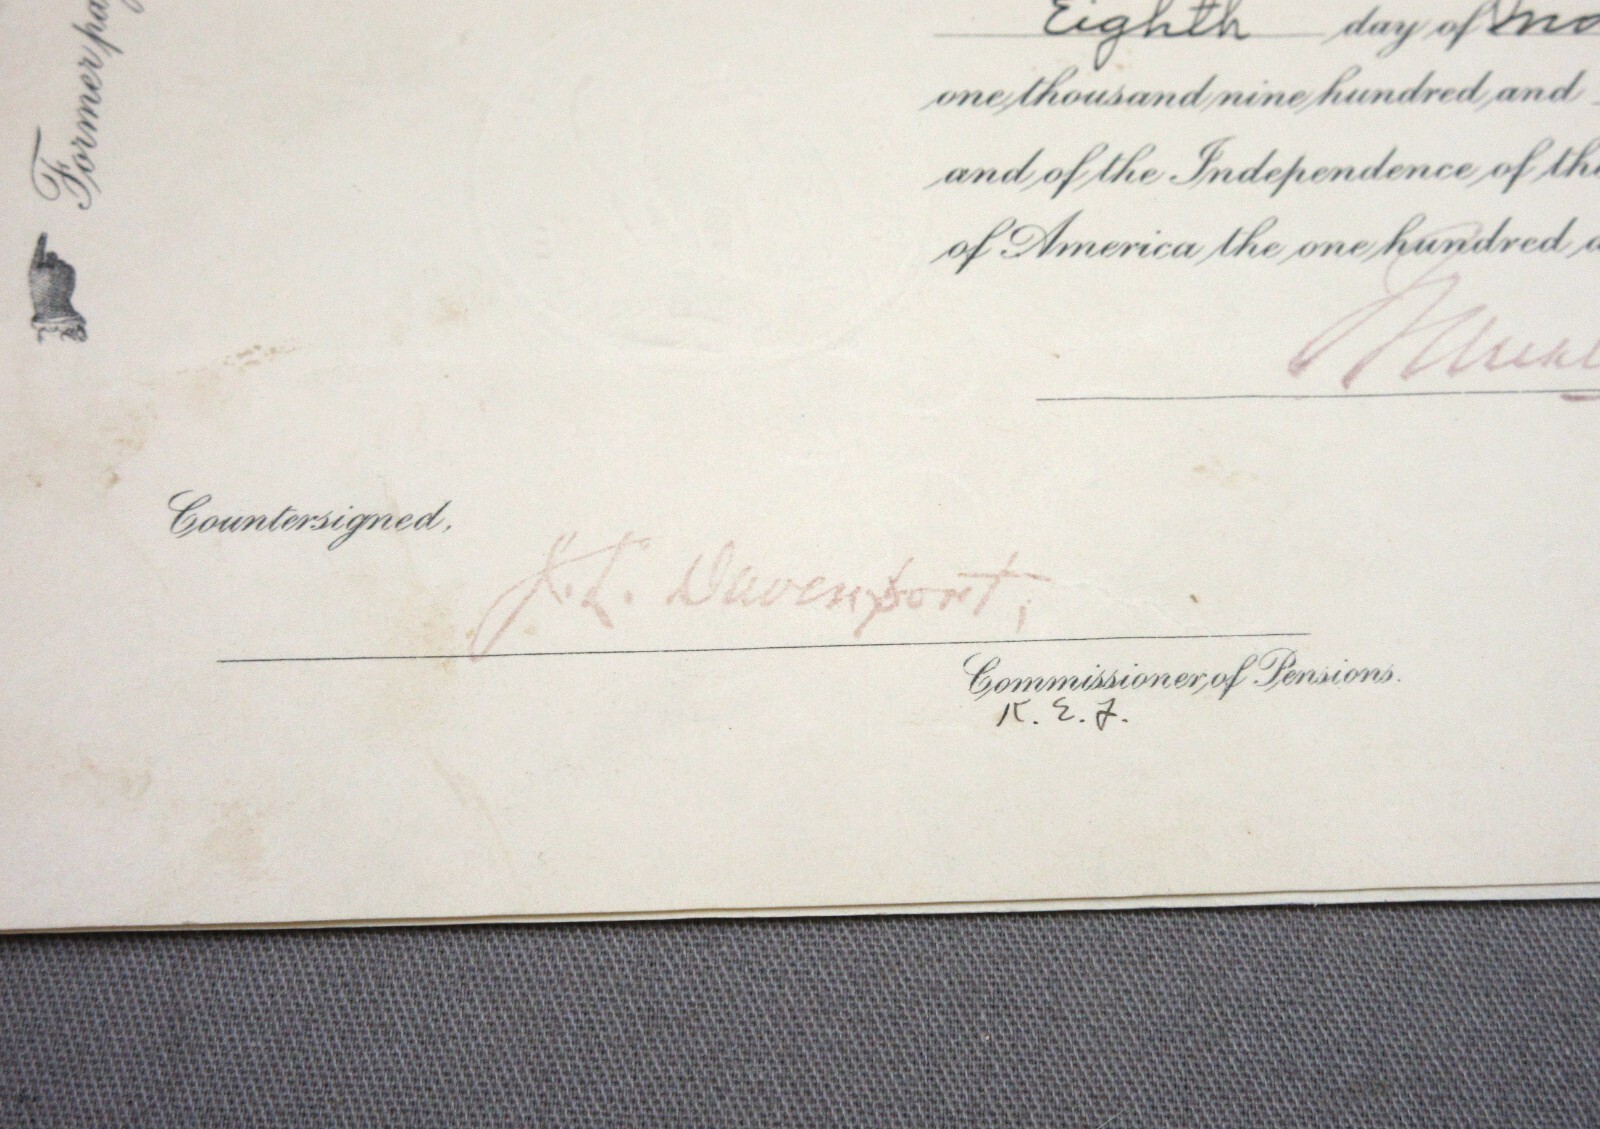 Former
Eighth day of
one thousand nine hundred and
and of the Independence of
of America the one hundred
Countersigned,
J. L. Davenport,
Commissioner of Pensions.
K. E. J.